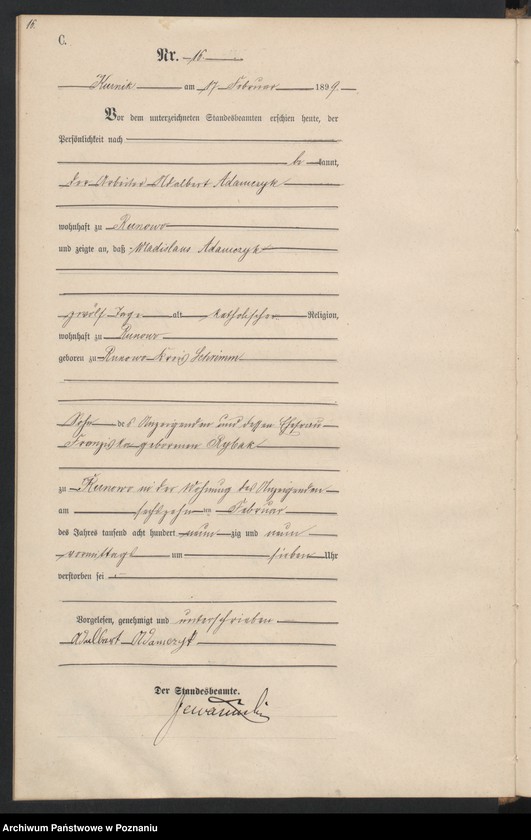 16.
C.
Nr. 16
Kurnik am 17 Februar 1899.
Vor dem unterzeichneten Standesbeamten erschien heute, der
Persönlichkeit nach
be kannt,
der Arbeiter Adalbert Adamczyk
wohnhaft zu Runowo
und zeigte an, daß Wladislaus Adamczyk
zwölf Tage alt katholischer Religion,
wohnhaft zu Runowo
geboren zu Runowo Kreis Schrimm
Sohn des Anzeigenden und dessen Ehefrau
Franziska geborenen Rybak
zu Runowo in der Wohnung des Anzeigenden
am sechszehn ten Februar
des Jahres tausend acht hundert neun zig und neun
vormittags um sieben Uhr
verstorben sei
Vorgelesen, genehmigt und unterschrieben
Adalbert Adamczyk
Der Standesbeamte.
Archiwum Państwowe w Poznaniu